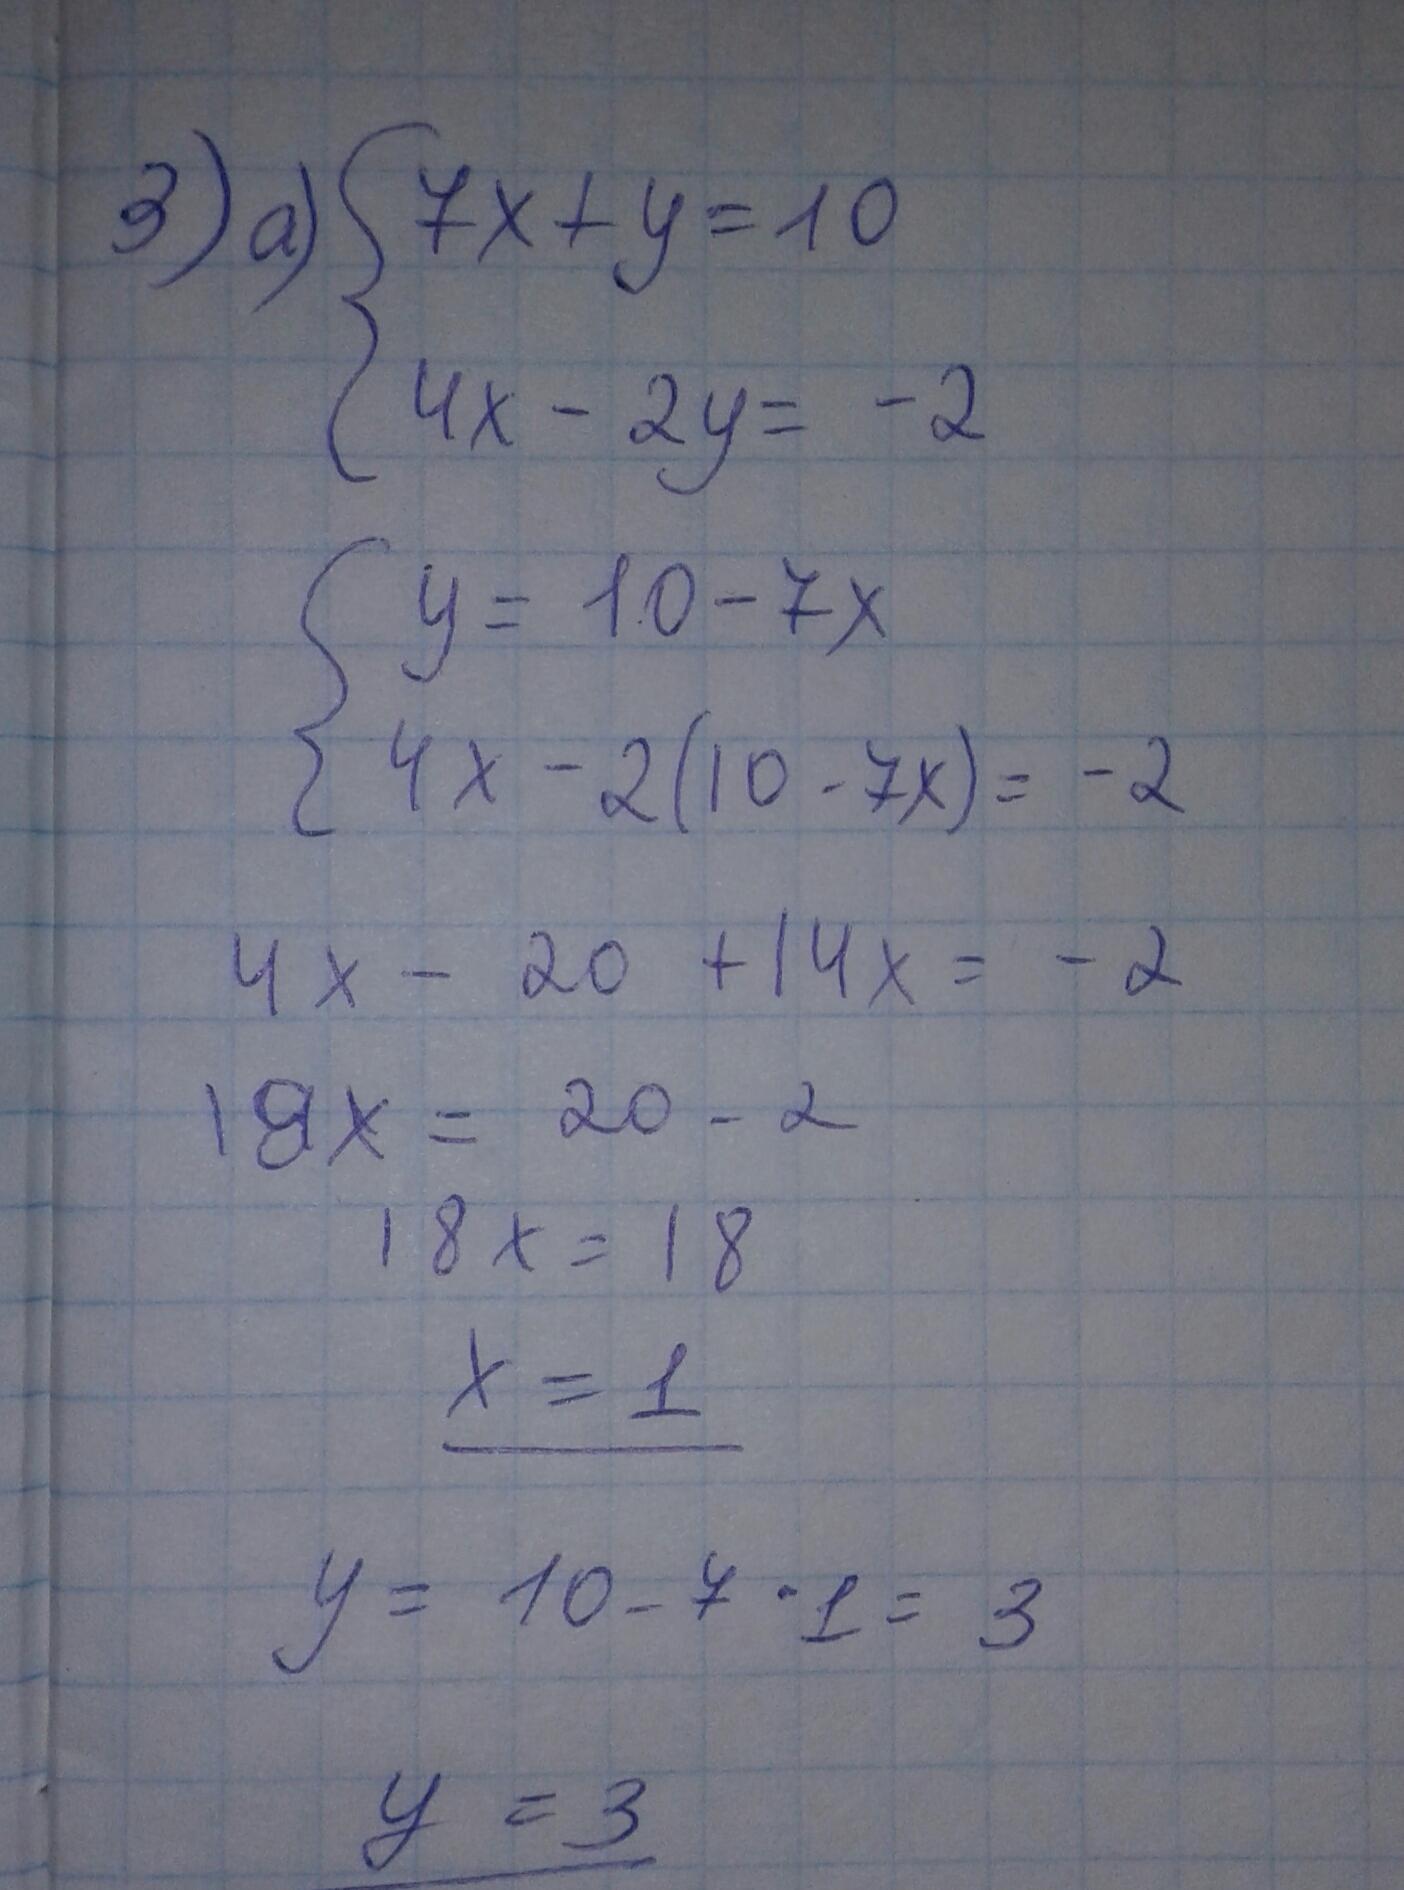 3) a) { 7x + y = 10
4x - 2y = -2
{ y = 10 - 7x
4x - 2(10 - 7x) = -2
4x - 20 + 14x = -2
18x = 20 - 2
18x = 18
x = 1
y = 10 - 7 · 1 = 3
y = 3